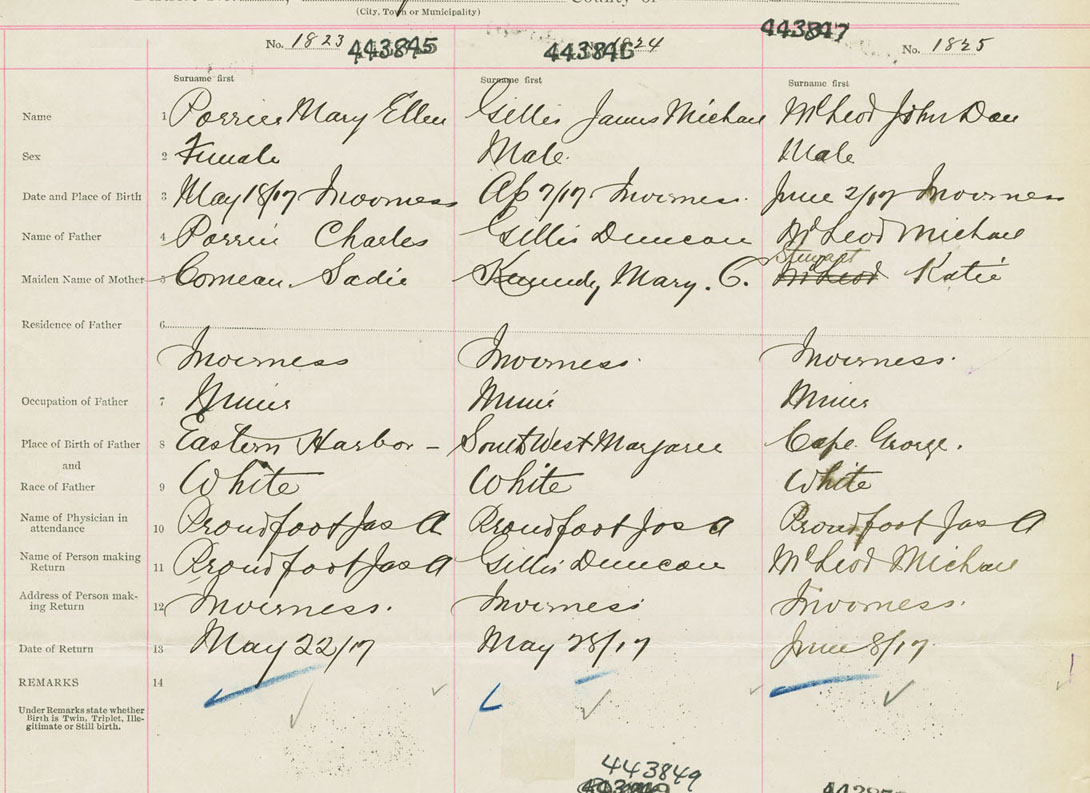 County of
(City, Town or Municipality)
No. 1823 443845 443846 1824 443847 No. 1825
Surname first Surname first Surname first
Name 1 Perrier Mary Ellen Gillis James Michael McLeod John Dan
Sex 2 Female Male. Male
Date and Place of Birth 3 May 18/17 Inverness Ap 7/17 Inverness. June 2/17 Inverness
Name of Father 4 Charles Gillis Duncan McLeod Michael
Stewart
Maiden Name of Mother 5 Comeau Sadie Kennedy Mary. C. McLeod Katie
Residence of Father 6
Inverness Inverness. Inverness.
Occupation of Father 7 Miner Miner Miner
Place of Birth of Father 8 Eastern Harbor – South West Margaree Cape George.
and
Race of Father 9 White White White
Name of Physician in
attendance 10 Proudfoot Jas A Proudfoot Jas A Proudfoot Jas A
Name of Person making
Return 11 Proudfoot Jas A Gillis Duncan McLeod Michael
Address of Person mak-
ing Return 12 Inverness. Inverness Inverness.
Date of Return 13 May 22/17 May 28/17 June 8/17.
REMARKS 14
Under Remarks state whether
Birth is Twin, Triplet, Ille-
gitimate or Still birth.
443849